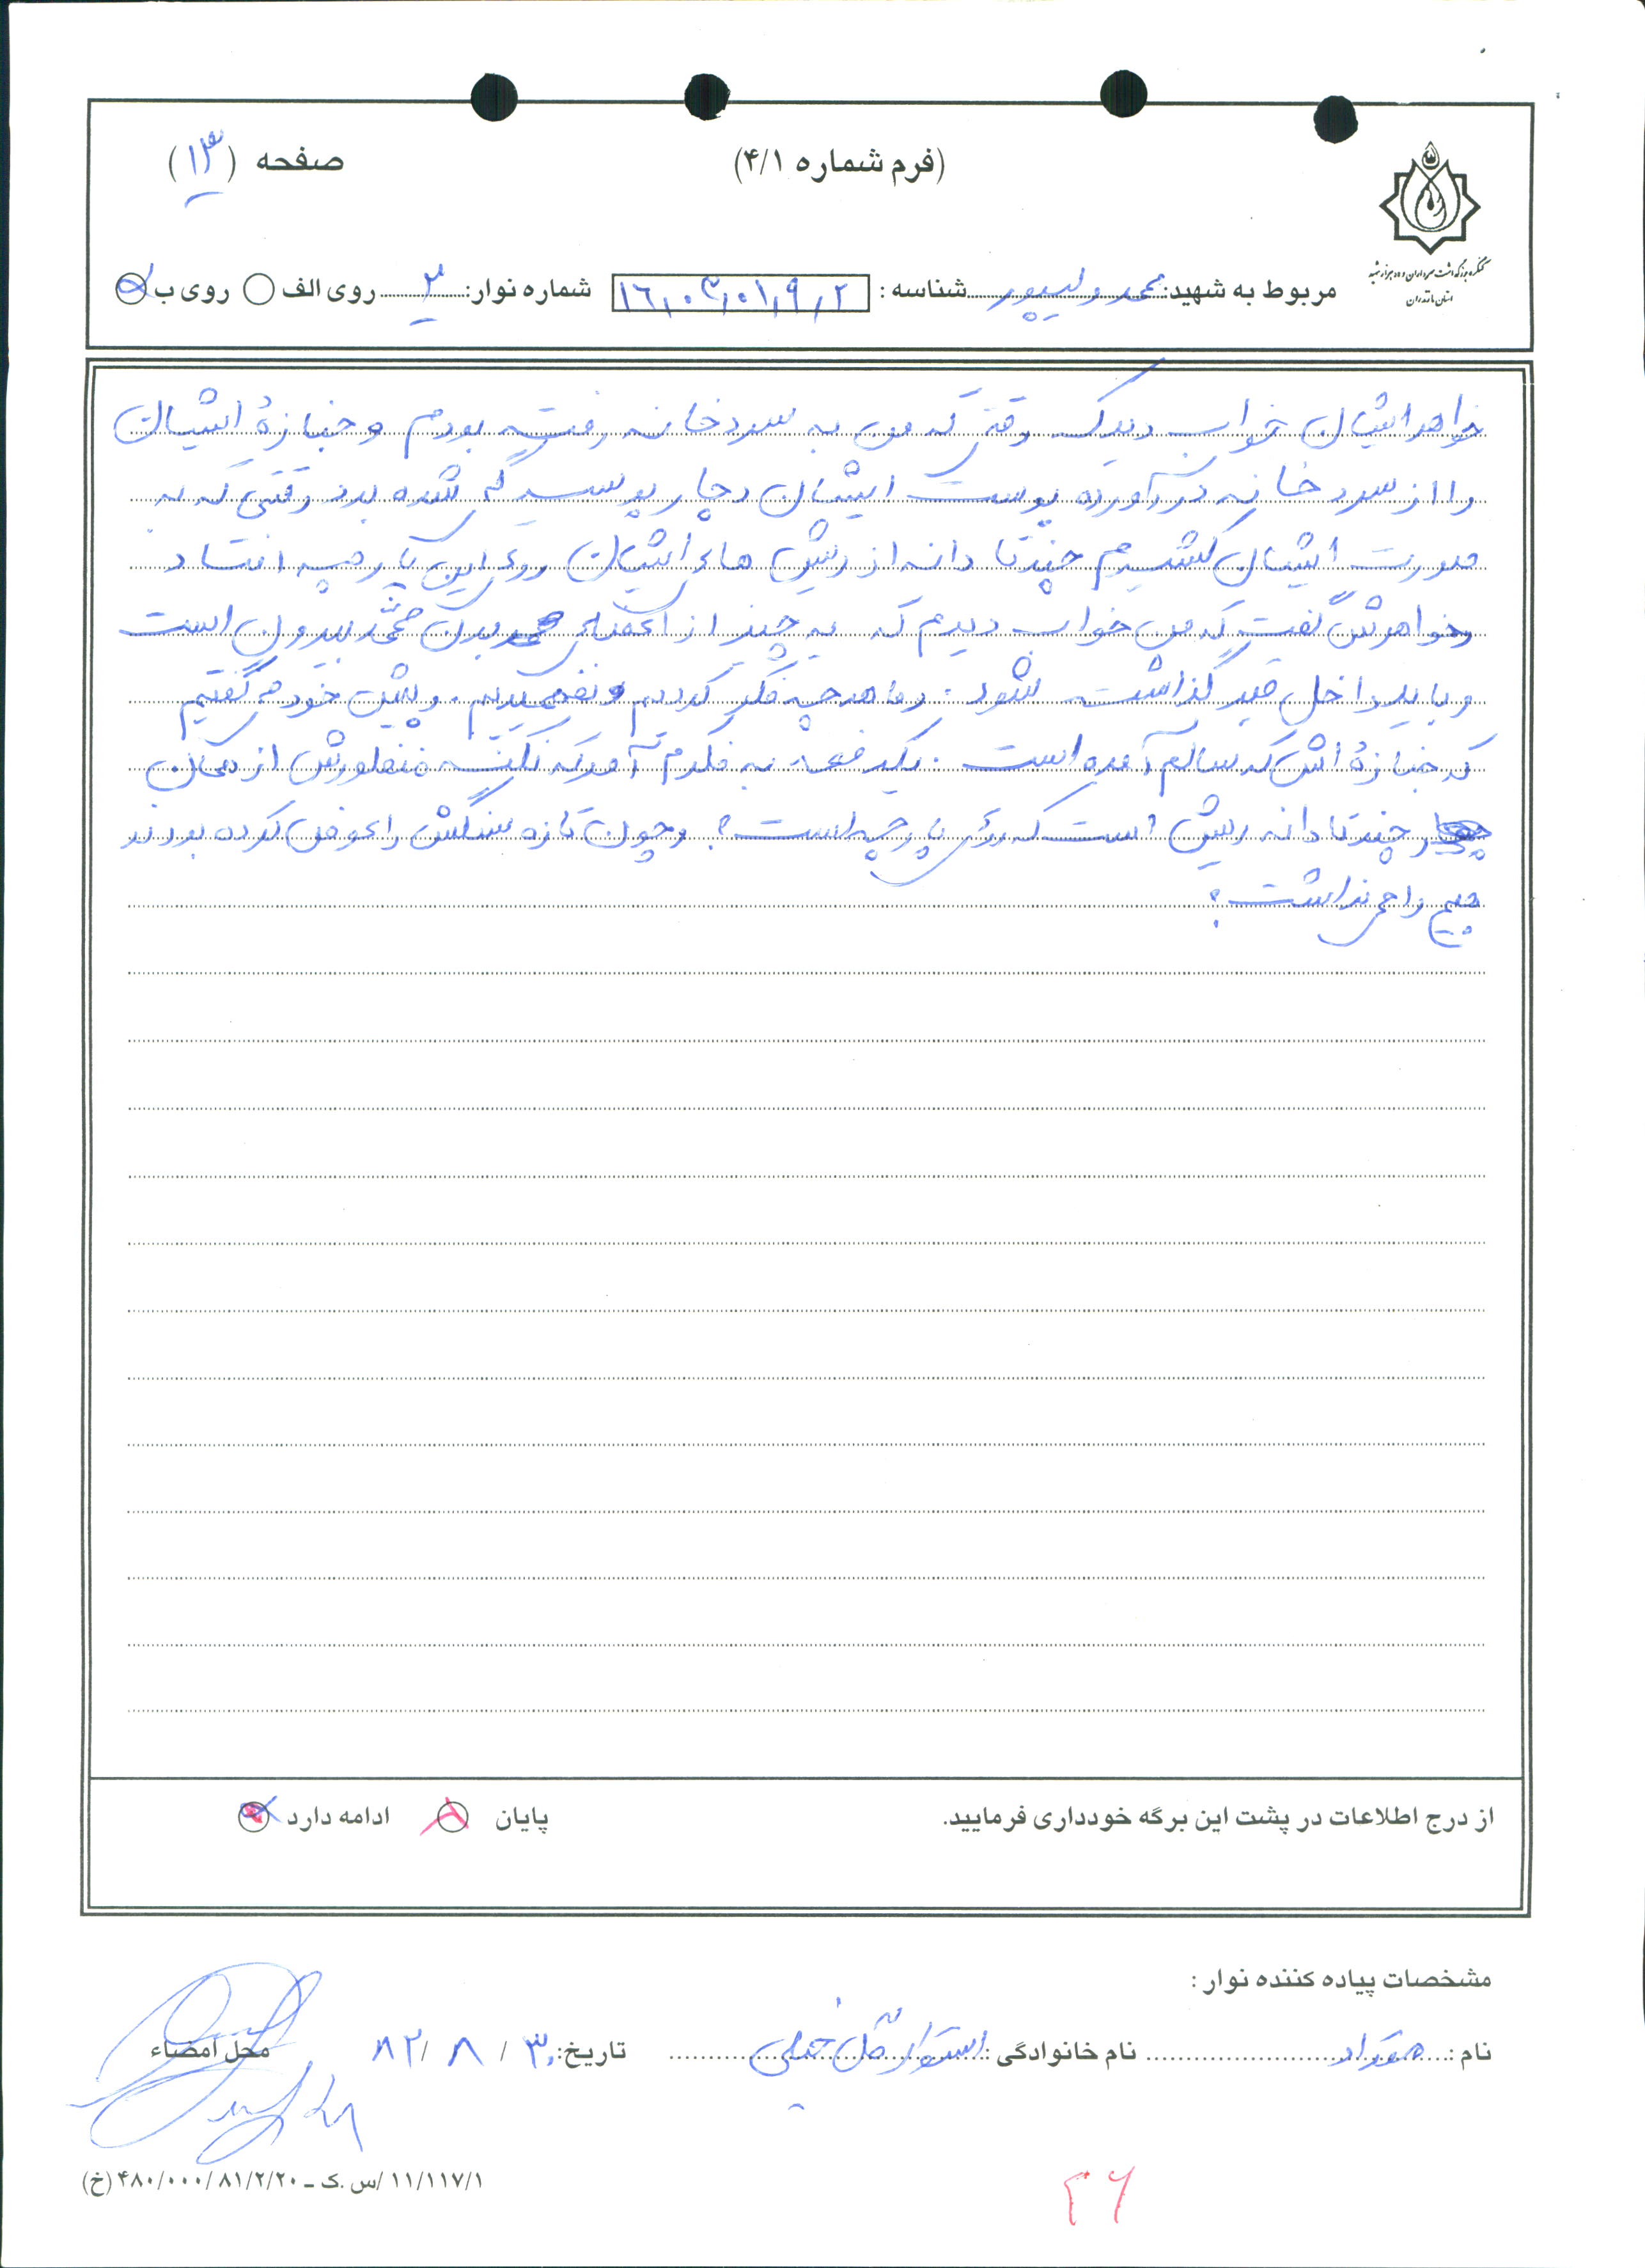 (فرم شماره ۴/۱)
صفحه (۱۳)
کنگره بزرگداشت سرداران و ده هزار شهید
استان مازندران
مربوط به شهید: محمد ولیپور شناسه: ۱۶٫۰۳٫۰۱٫۹٫۲ شماره نوار: ۲ روی الف روی ب
خواهر ایشان خواب دید که وقتی که من به سردخانه رفته بودم و جنازهٔ ایشان
را از سردخانه در آورده پوست ایشان دچار پوسیدگی شده بود وقتی که به
صورت ایشان کشیدم چندتا دانه از ریش های ایشان روی این پارچه افتاد
و خواهرش گفت که من خواب دیدم که یه چیز از اعضای بدن محمد بیرون است
و باید داخل قبر گذاشته شود. و ما هر چه فکر کردیم و نفهمیدیم. و پیش خود می گفتیم
که جنازهٔ اش که سالم آمده است. یکدفعه به فکرم آمد که نکنه منظورش از همان
چندتا دانه ریش است که روی پارچه است؟ و چون تازه سنگش را عوض کرده بودند
هیچ راهی نداشت؟
از درج اطلاعات در پشت این برگه خودداری فرمایید.
پایان ادامه دارد
مشخصات پیاده کننده نوار:
نام: مقداد نام خانوادگی: استوار تاریخ: ۳۰ / ۸ / ۸۲ محل امضاء
۱۱/۱۱۷/۱ /س.ک ـ ۴۸۰/۰۰۰/۸۱/۲/۲۰ (خ)
۲۶